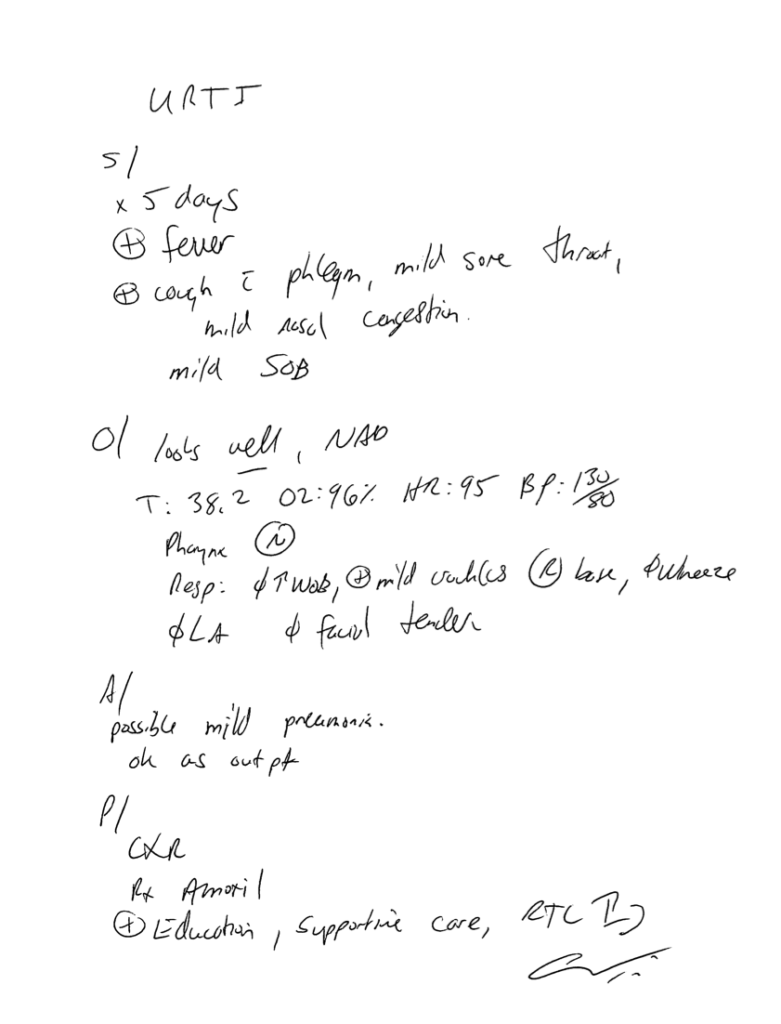 URTI
S/
x 5 days
⊕ fever
⊕ cough c̄ phlegm, mild sore throat,
mild nasal congestion.
mild SOB
O/ looks well, NAD
T: 38.2 O2:96% HR:95 BP:130/80
Pharynx Ⓝ
Resp: ϕ↑WOB, ⊕ mild crackles Ⓡ base, ϕwheeze
ϕLA ϕ facial tender
A/
possible mild pneumonia.
ok as outpt
P/
CXR
Rx Amoxil
⊕ Education, supportive care, RTC